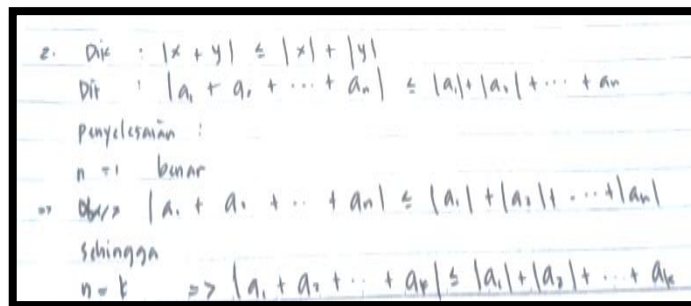 2. Dik : |x + y| ≤ |x| + |y|
Dit : |a₁ + a₂ + ... + aₙ| ≤ |a₁| + |a₂| + ... + aₙ
Penyelesaian :
n = 1 benar
=> |a₁ + a₂ + ... + aₙ| ≤ |a₁| + |a₂| + ... + |aₙ|
Sehingga
n = k => |a₁ + a₂ + ... + aₖ| ≤ |a₁| + |a₂| + ... + aₖ